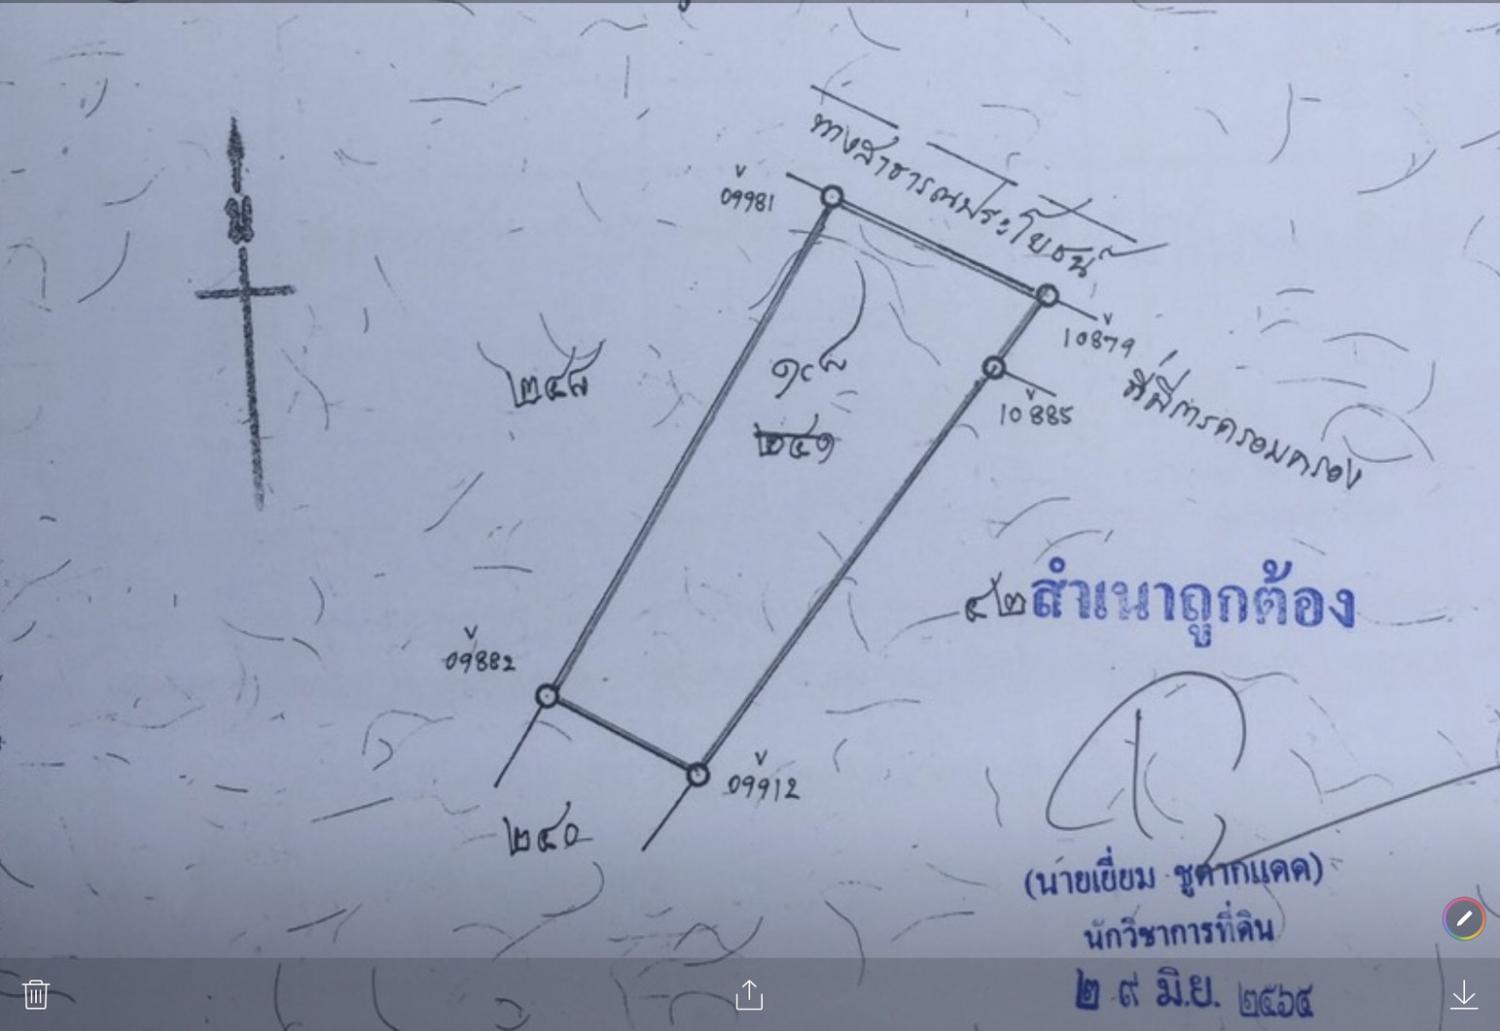 น
ทางสาธารณประโยชน์
09981
10879
๒๔๘
๑๘
10885
ที่มีการครอบครอง
๒๔๑
๔๒
สำเนาถูกต้อง
09882
09912
๒๔๐
นักวิชาการที่ดิน
๒๙ มิ.ย. ๒๕๖๔